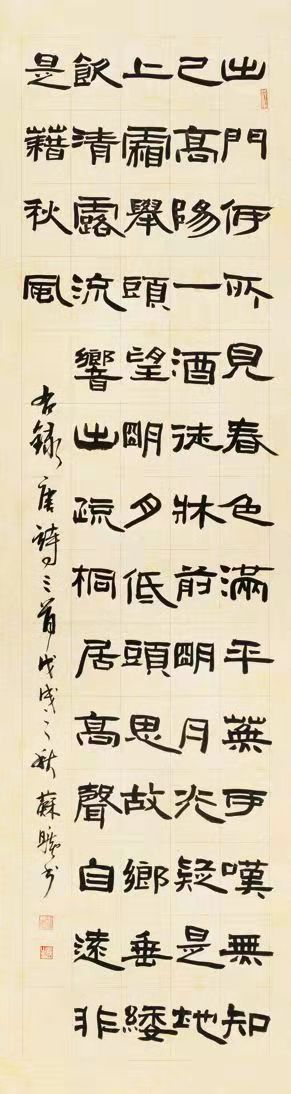 出門何所見春色滿平蕪可嘆無知
己高陽一酒徒牀前明月光疑是地
上霜舉頭望明月低頭思故鄉垂緌
飲清露流響出疏桐居高聲自遠非
是藉秋風
右錄唐詩三首戊戌之秋蘇書